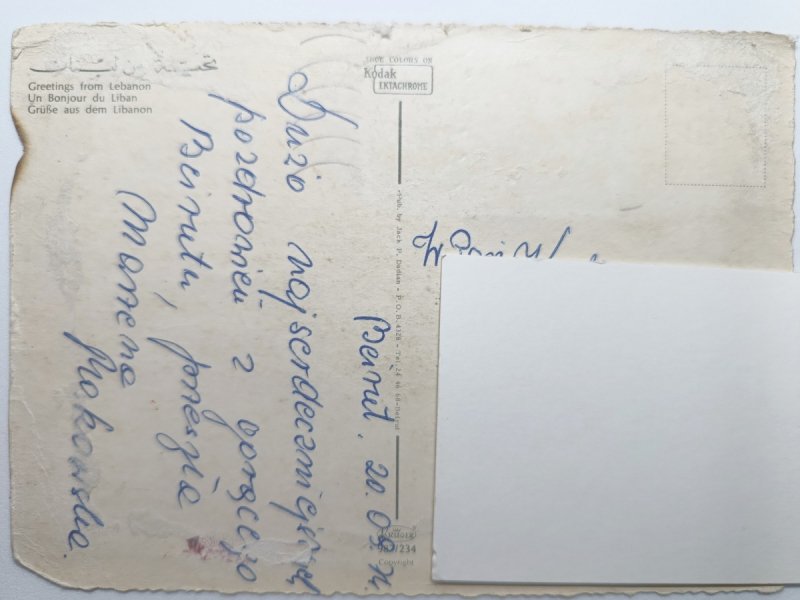 تحية من لبنان
Greetings from Lebanon
Un Bonjour du Liban
Grüße aus dem Libanon
TRUE COLORS ON
Kodak
EKTACHROME
Pub. by Jack P. Dadian - P.O.B. 4328 - Tel. 24 46 68-Beirut
987/234
Copyright
Beirut. 20.09.74.
Dużo najserdeczniejszych
pozdrowień z gorącego
Beirutu, przesyła
Marzena
Makowska.